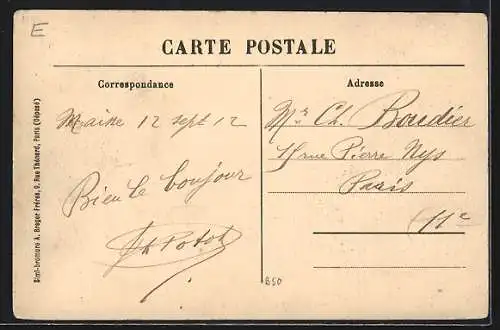 E
CARTE POSTALE
Correspondance
Adresse
Maisse 12 sept 12
Bien le bonjour
Mr Ch. Boudier
rue Pierre Nys
Paris
11e
Simili-bromure A. Breger Frères, 9, Rue Thénard, Paris (Déposé)
B50